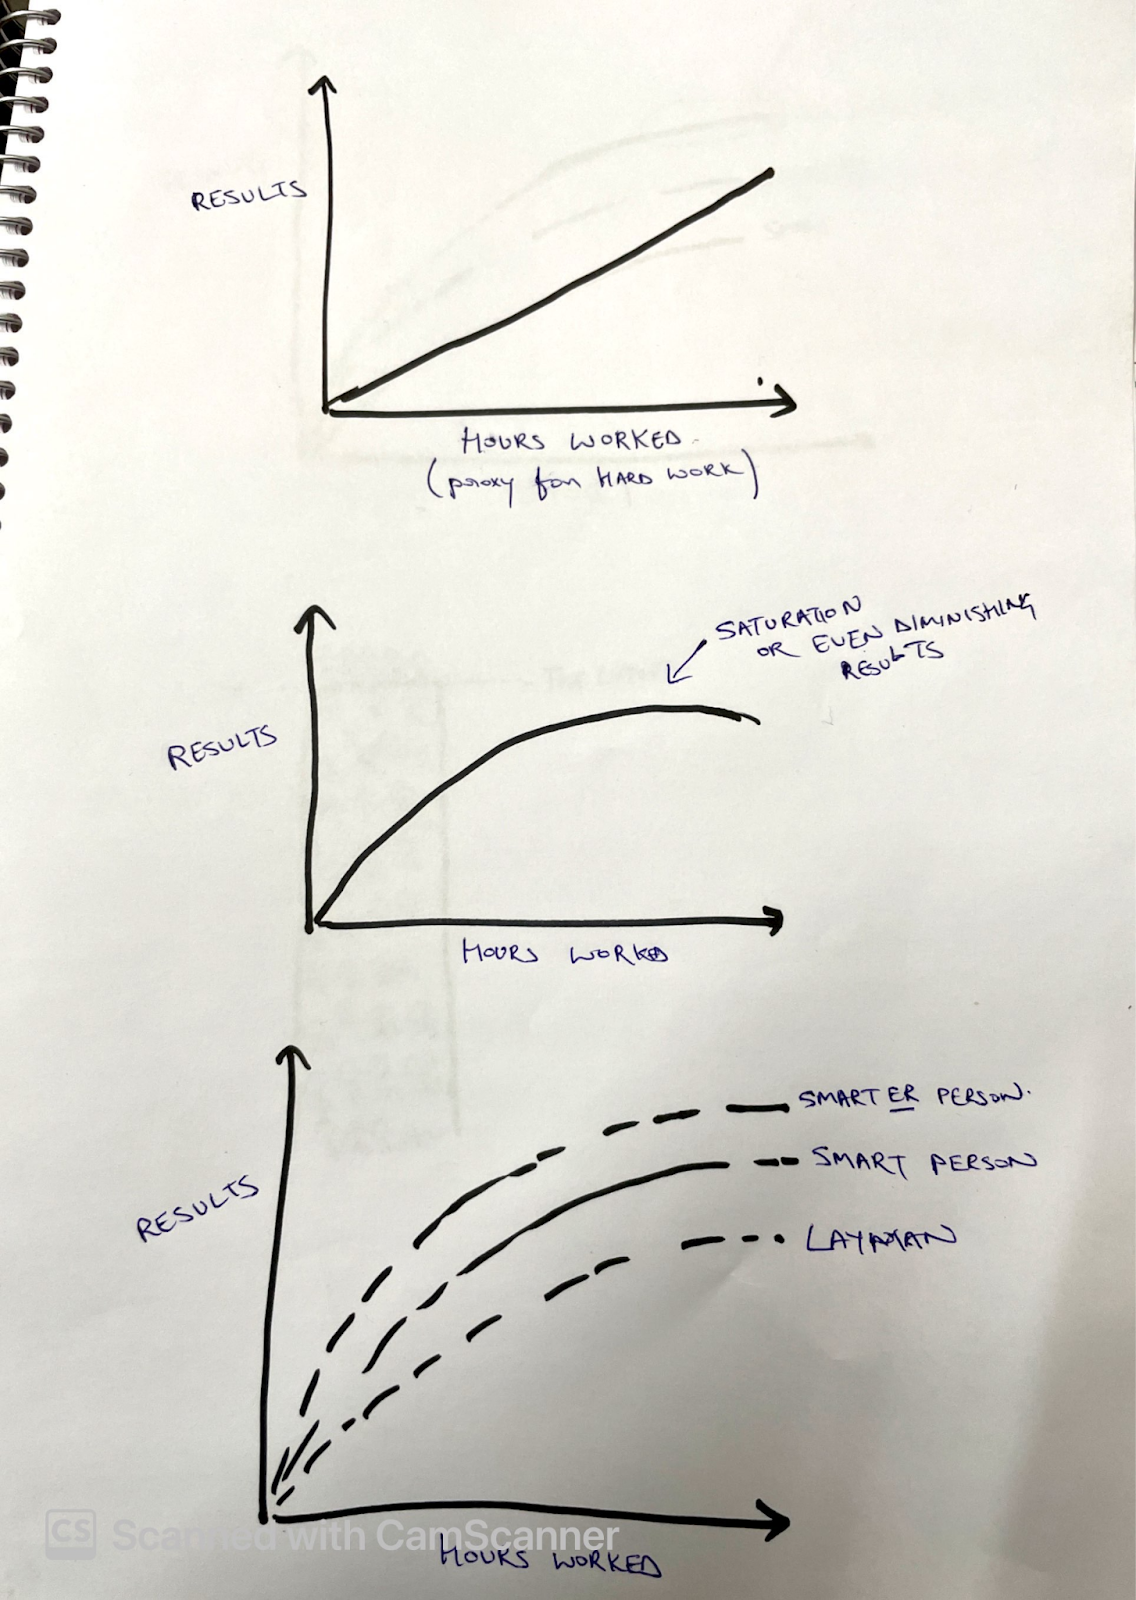 RESULTS
HOURS WORKED
(proxy for HARD WORK)
SATURATION
OR EVEN DIMINISHING
RESULTS
RESULTS
HOURS WORKED
SMARTER PERSON.
SMART PERSON
LAYMAN
RESULTS
CS Scanned with CamScanner
HOURS WORKED